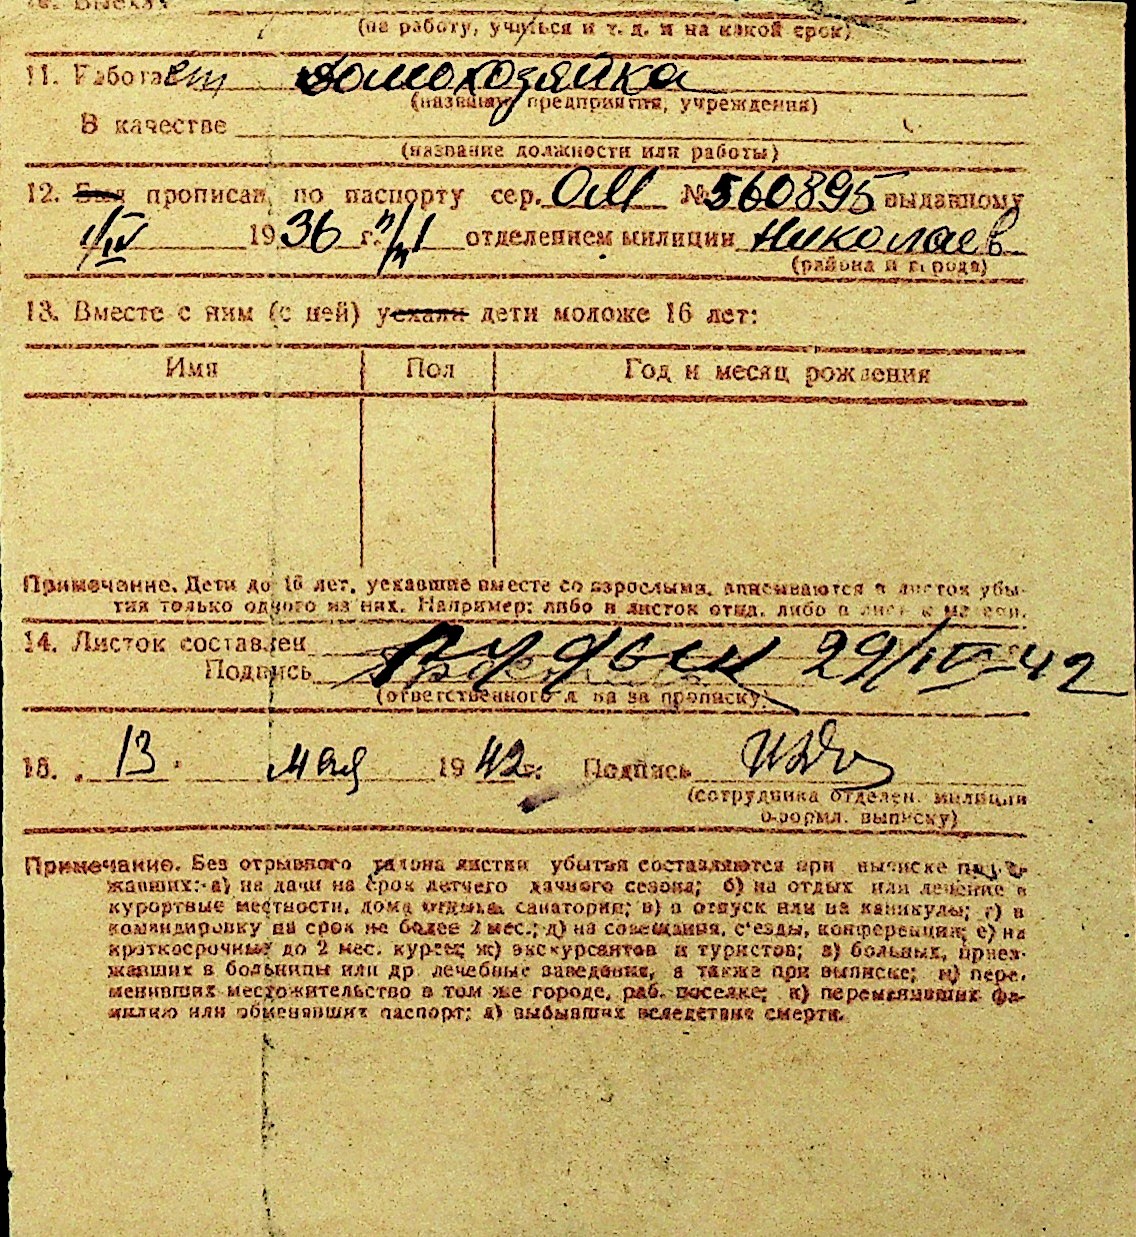 10. Выехал
(на работу, учиться и т. д. и на какой срок)
11. Работает домохозяйка
(название предприятия, учреждения)
В качестве
(название должности или работы)
12. Был прописан по паспорту сер. ОМ № 560895 выданному
1/IV 1936 г. отделением милиции Николаев
(района и города)
13. Вместе с ним (с ней) уехали дети моложе 16 лет:
Имя Пол Год и месяц рождения
Примечание. Дети до 16 лет, уехавшие вместе со взрослыми, вписываются в листок убы-
тия только одного из них. Например: либо в листок отца, либо в листок матери.
14. Листок составлен 29/IV-42
Подпись
(ответственного лица за прописку)
15. 13 мая 1942 г. Подпись
(сотрудника отделен. милиции
оформл. выписку)
Примечание. Без отрывного талона листки убытия составляются при выписке
жавших: а) на дачи на срок летнего дачного сезона; б) на отдых или лечение в
курортные местности, дома отдыха, санатории; в) в отпуск или на каникулы; г) в
командировку на срок не более 2 мес.; д) на совещания, с'езды, конференции; е) на
краткосрочные до 2 мес. курсы; ж) экскурсантов и туристов; з) больных, приез-
жавших в больницы или др. лечебные заведения, а также при выписке; и) пере-
менивших местожительство в том же городе, раб. поселке; к) переменивших фа-
милию или обменявших паспорт; л) выбывших вследствие смерти.